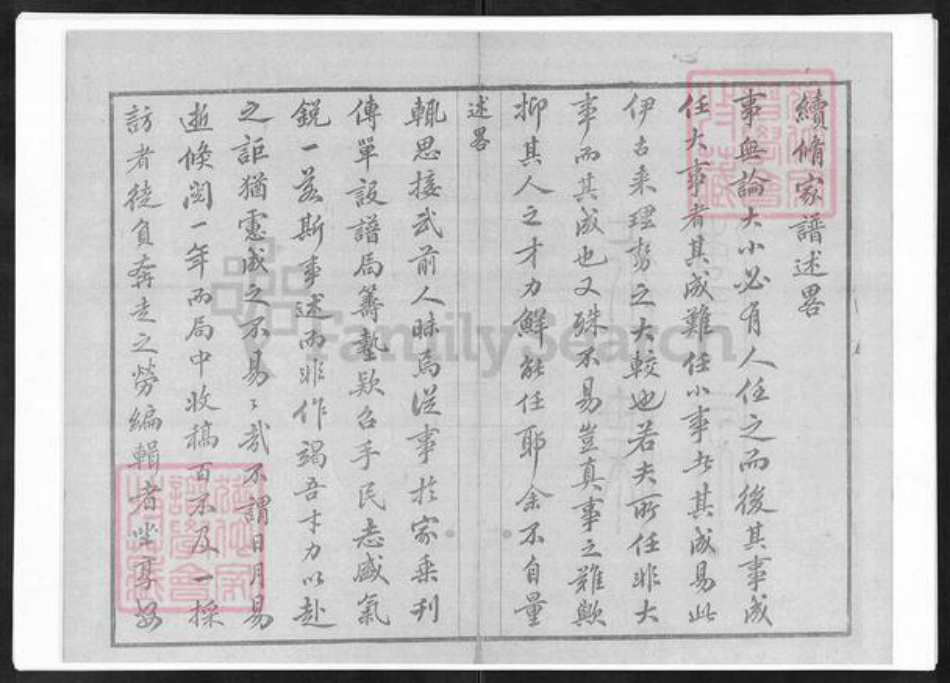 續脩家譜述畧
事無論大小必有人任之而後其事成
任大事者其成難任小事者其成易此
伊古来理勢之大較也若夫所任非大
事而其成也又殊不易豈真事之難歟
抑其人之才力鮮能任耶余不自量
述畧
輒思接武前人昧焉從事於家乘刊
傳單設譜局籌墊欵召手民志盛氣
銳一若斯事述而非作竭吾才力以赴
之詎猶慮成之不易〻哉不謂日月易
逝倏閲一年而局中收稿百不及一採
訪者徒負奔走之勞編輯者坐享安
FamilySearch